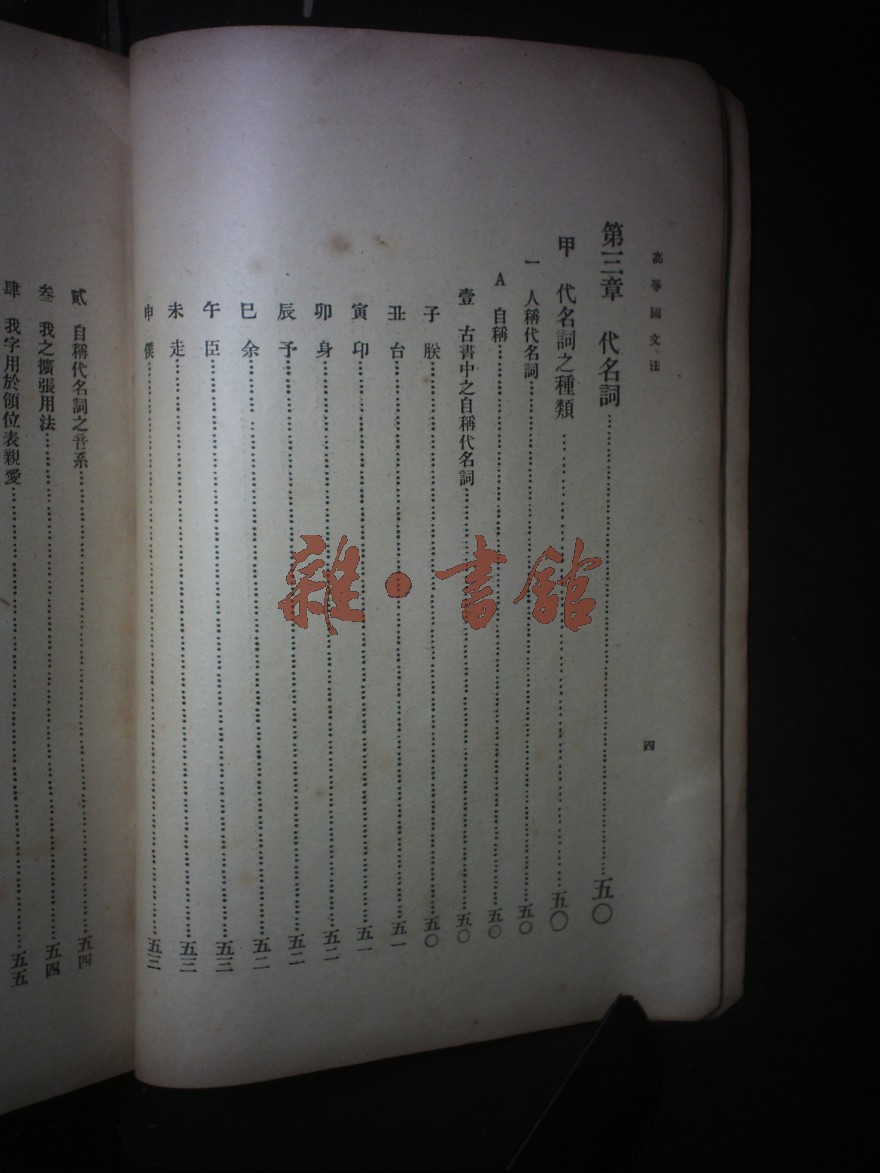 高等國文法
四
第三章　代名詞……五〇
甲　代名詞之種類……五〇
一　人稱代名詞……五〇
A　自稱……五〇
壹　古書中之自稱代名詞……五〇
子　朕……五〇
丑　台……五一
寅　卬……五一
卯　身……五二
辰　予……五二
巳　余……五二
午　臣……五三
未　走……五三
申　僕……五三
貳　自稱代名詞之音系……五四
叁　我之擴張用法……五四
肆　我字用於領位表親愛……五五
雜·書館